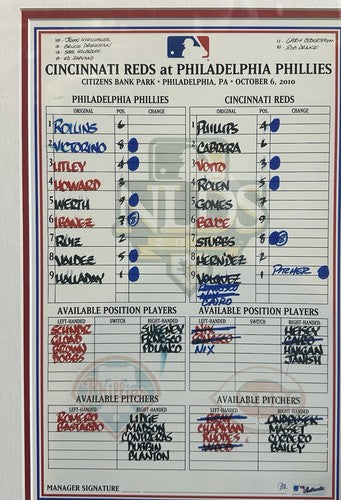 HP - JOHN HIRSCHBECK
1B - BRUCE DRECKMAN
LF - GARY CEDERSTROM
RF - ROB DRAKE
CINCINNATI REDS at PHILADELPHIA PHILLIES
CITIZENS BANK PARK • PHILADELPHIA, PA • OCTOBER 6, 2010
PHILADELPHIA PHILLIES
ORIGINAL POS. CHANGE
1 ROLLINS 6
2 VICTORINO 8
3 UTLEY 4
4 HOWARD 3
5 WERTH 9
6 IBANEZ 7
7 RUIZ 2
8 VALDEZ 5
9 HALLADAY 1
CINCINNATI REDS
ORIGINAL POS. CHANGE
1 PHILLIPS 4
2 CABRERA 6
3 VOTTO 3
4 ROLEN 5
5 GOMES 7
6 BRUCE 9
7 STUBBS 8
8 HERNIDEZ 2
9 VOLQUEZ 1 PITCHER
CAIRO
AVAILABLE POSITION PLAYERS
LEFT-HANDED SWITCH RIGHT-HANDED
SCHNDR SWEENEY
GLOAD FRNCSCO
BROWN POLANCO
DOBBS
AVAILABLE POSITION PLAYERS
LEFT-HANDED SWITCH RIGHT-HANDED
NIX HERSEY
CAIRO
NIX HANIGAN
JANISH
AVAILABLE PITCHERS
LEFT-HANDED RIGHT-HANDED
ROMERO LIDGE
BASTARDO MADSON
CONTRERAS
DURBIN
BLANTON
AVAILABLE PITCHERS
LEFT-HANDED RIGHT-HANDED
ONDRUSEK
CHAPMAN MASSET
RHODES CORDERO
WOOD BAILEY
MANAGER SIGNATURE